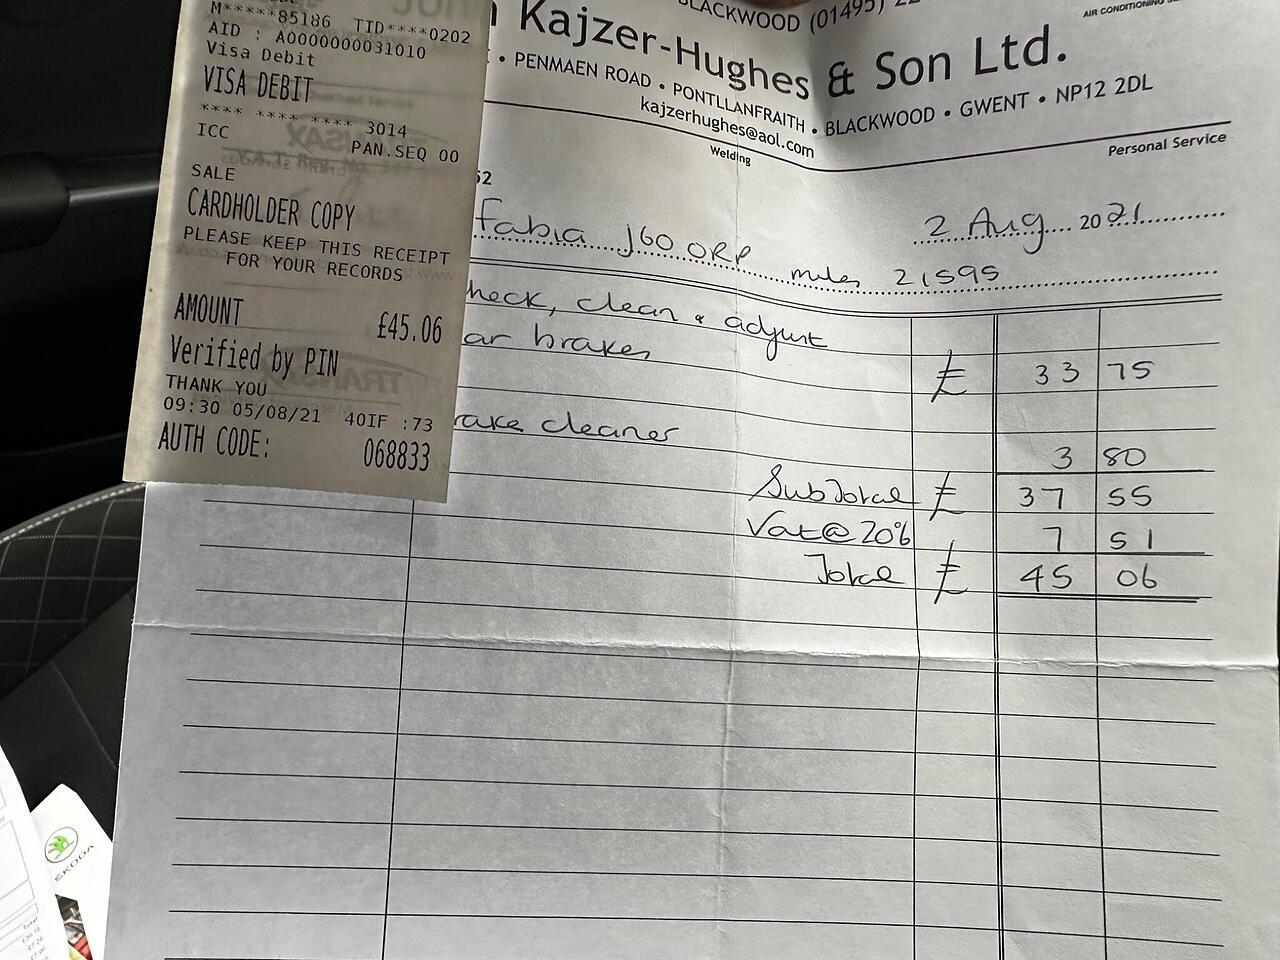 M*****85186 TID****0202
AID : A0000000031010
Visa Debit
VISA DEBIT
**** **** **** 3014
ICC
PAN.SEQ 00
SALE
CARDHOLDER COPY
PLEASE KEEP THIS RECEIPT
FOR YOUR RECORDS
AMOUNT £45.06
Verified by PIN
THANK YOU
09:30 05/08/21 40IF :73
AUTH CODE: 068833
BLACKWOOD (01495)
Kajzer-Hughes & Son Ltd.
AIR CONDITIONING
• PENMAEN ROAD • PONTLLANFRAITH • BLACKWOOD • GWENT • NP12 2DL
kajzerhughes@aol.com
Welding
Personal Service
52
2 Aug 2021
Fabia J60 ORP miles 21595
heck, clean & adjust
ar brakes £ 33 75
rake cleaner 3 80
SubTotal £ 37 55
Vat@20% 7 51
Total £ 45 06
ŠKODA
Total